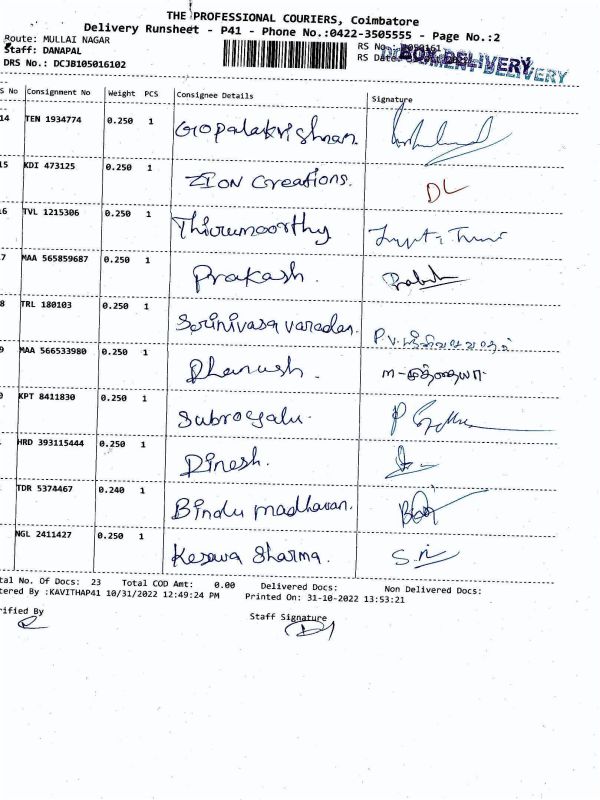 THE PROFESSIONAL COURIERS, Coimbatore
Delivery Runsheet - P41 - Phone No.:0422-3505555 - Page No.:2
Route: MULLAI NAGAR
Staff: DANAPAL
DRS No.: DCJB105016102
RS No.:
RS Date:
BOX DELIVERY
DELIVERY
S No Consignment No Weight PCS Consignee Details Signature
14 TEN 1934774 0.250 1 Gopalakrishnan
15 KDI 473125 0.250 1 ZION Creations. DL
16 TVL 1215306 0.250 1 Thirumoorthy
7 MAA 565859687 0.250 1 Prakash.
8 TRL 180103 0.250 1 Srinivasa varadan.
9 MAA 566533980 0.250 1 Dhanush.
0 KPT 8411830 0.250 1 Subroyalu.
HRD 393115444 0.250 1 Dinesh.
TDR 5374467 0.240 1 Bindu madhavan.
NGL 2411427 0.250 1 Kesava Sharma.
tal No. Of Docs: 23 Total COD Amt: 0.00 Delivered Docs: Non Delivered Docs:
tered By :KAVITHAP41 10/31/2022 12:49:24 PM Printed On: 31-10-2022 13:53:21
rified By Staff Signature